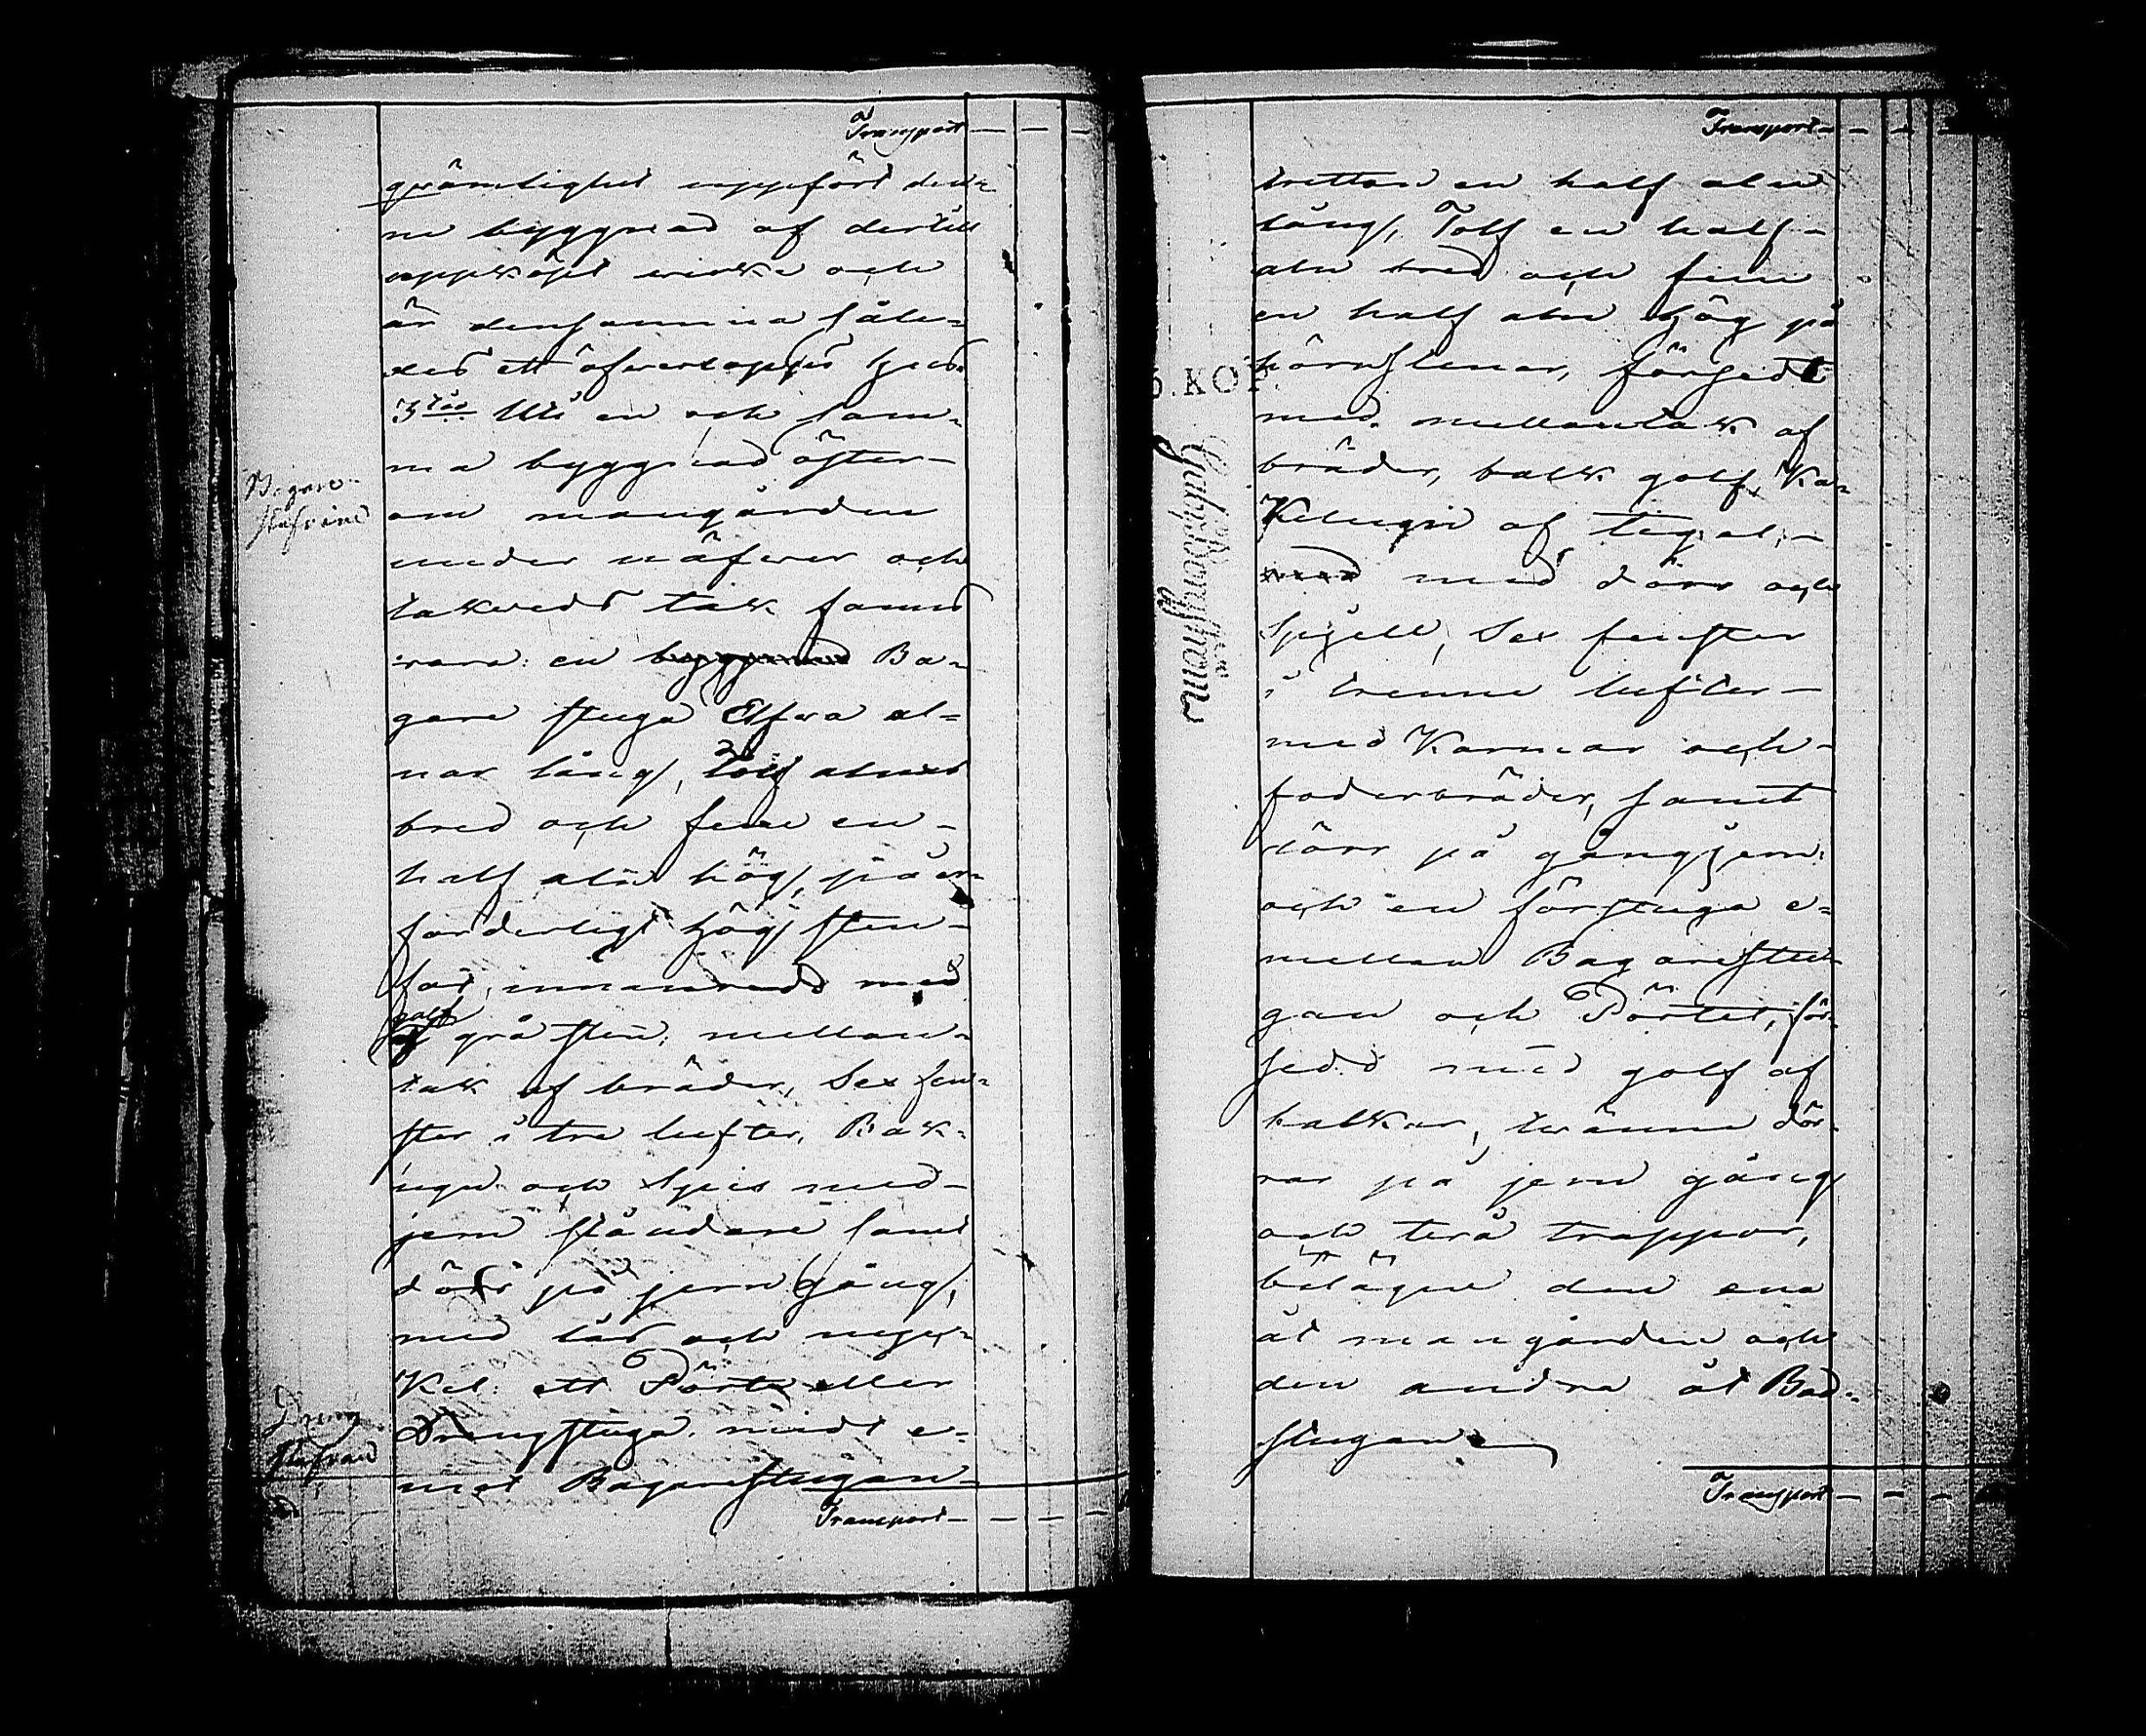 Transport
qvämlighet uppfört den-
na byggnad af dertill
uppköpt virke och
är densamma såle-
des ett öfverlopps hus.
3tio Uti en och sam-
ma byggnad öster-
om mangården
Bagare-
stufvan
under näfver och
takveds tak fanns
vara: en byggnad Ba-
gare stuga Elfva al-
nar lång, Tolf alnar
bred och fem en-
half aln hög, på er-
forderligt hög sten-
fot, innanredd med
golf
af grå sten, mellan-
tak af bräder, Sex fen-
ster i tre lufter, Bak-
ugn och Spis med-
jern ståndare samt
dörr på jern gång,
med lås och nyc-
kel: ett Pörte eller
Dräng
stufvan
Drängstuga midt e-
mot Bagarestugan-
Transport
Transport
tretton en half aln
lång, Tolf en half-
aln bred och fem
en half aln hög på
hörnstenar, försedt
5.KOP.
med mellantak af
bräder, balk golf, Ka-
kelugn af tegel,-
med med dörr och
Spjell, Sex fenster
i trenne lufter-
med Karmar och-
foderbräder, samt
dörr på gångjern:
och en förstuga e-
mellan Bagarestu-
gan och Pörtet, för-
sedd med golf af
balkar, tvänne dör-
rar på jern gång
och två trappor,
belägne den ena
åt mangården och
den andra åt Bad-
stugan
Transport